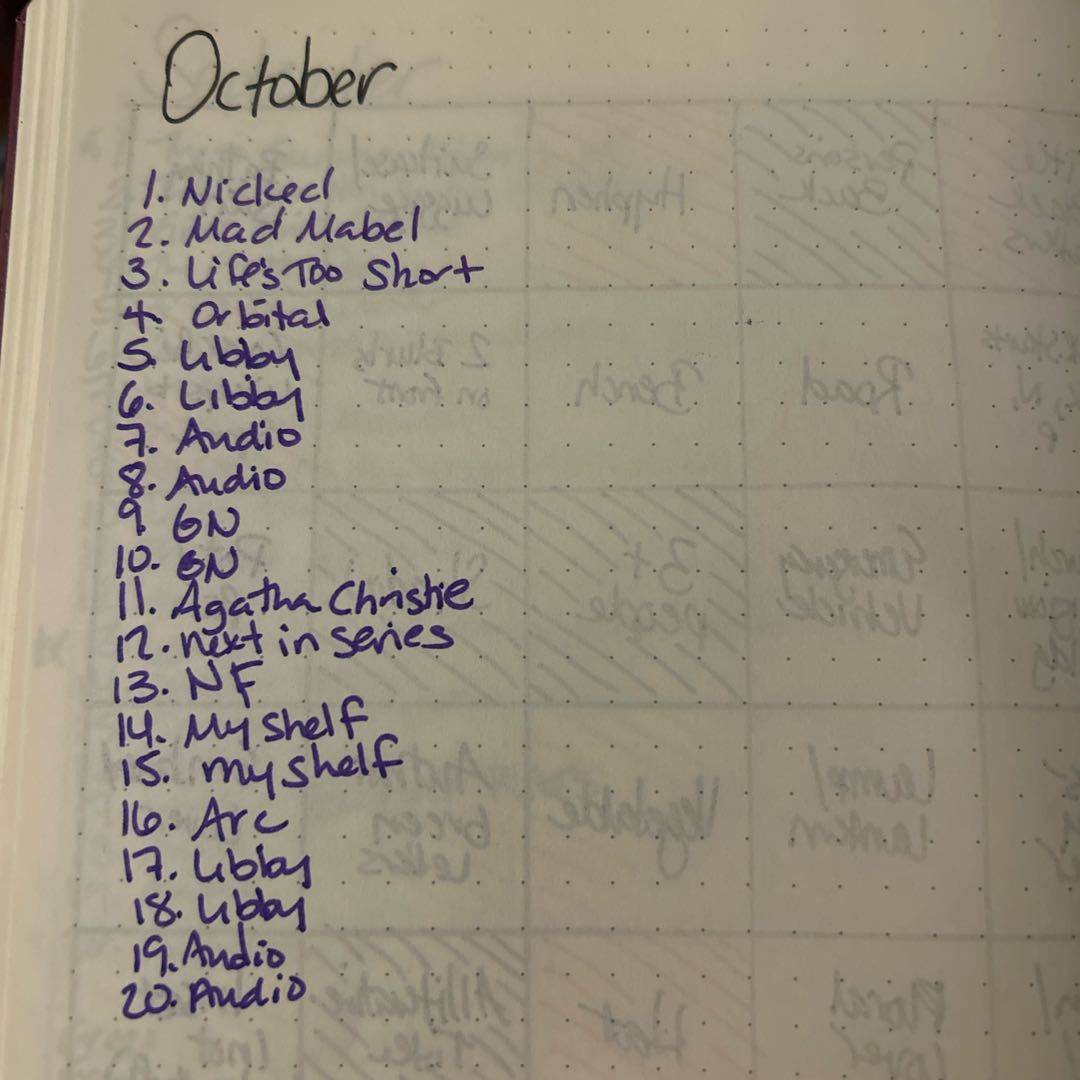 October
1. Nicked
2. Mad Mabel
3. Life's Too Short
4. Orbital
5. Libby
6. Libby
7. Audio
8. Audio
9. GN
10. GN
11. Agatha Christie
12. next in series
13. NF
14. My shelf
15. my shelf
16. Arc
17. Libby
18. Libby
19. Audio
20. Audio